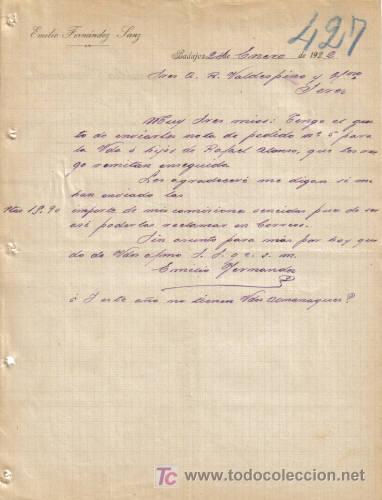 Emilio Fernández Sanz
427
Badajoz 2 de Enero de 1922
Sres A. R. Valdespino y Hno
Jerez
Muy Sres mios: Tengo el gus
to de enviarles nota de pedido nº 5 para
la Vda é hijos de Rafael Alonso, que les rue
go remitan enseguida.
Les agradeceré me digan si me
han enviado las
Ptas 18.90 importe de mis comisiones vencidas para de ser
asi poderlas reclamar en Correos.
Sin asunto para mas por hoy que
do de Vdes afmo S. S. q e. s. m.
Emilio Fernandez
¿ Este año no tienen Vdes almanaques?
TC www.todocoleccion.net